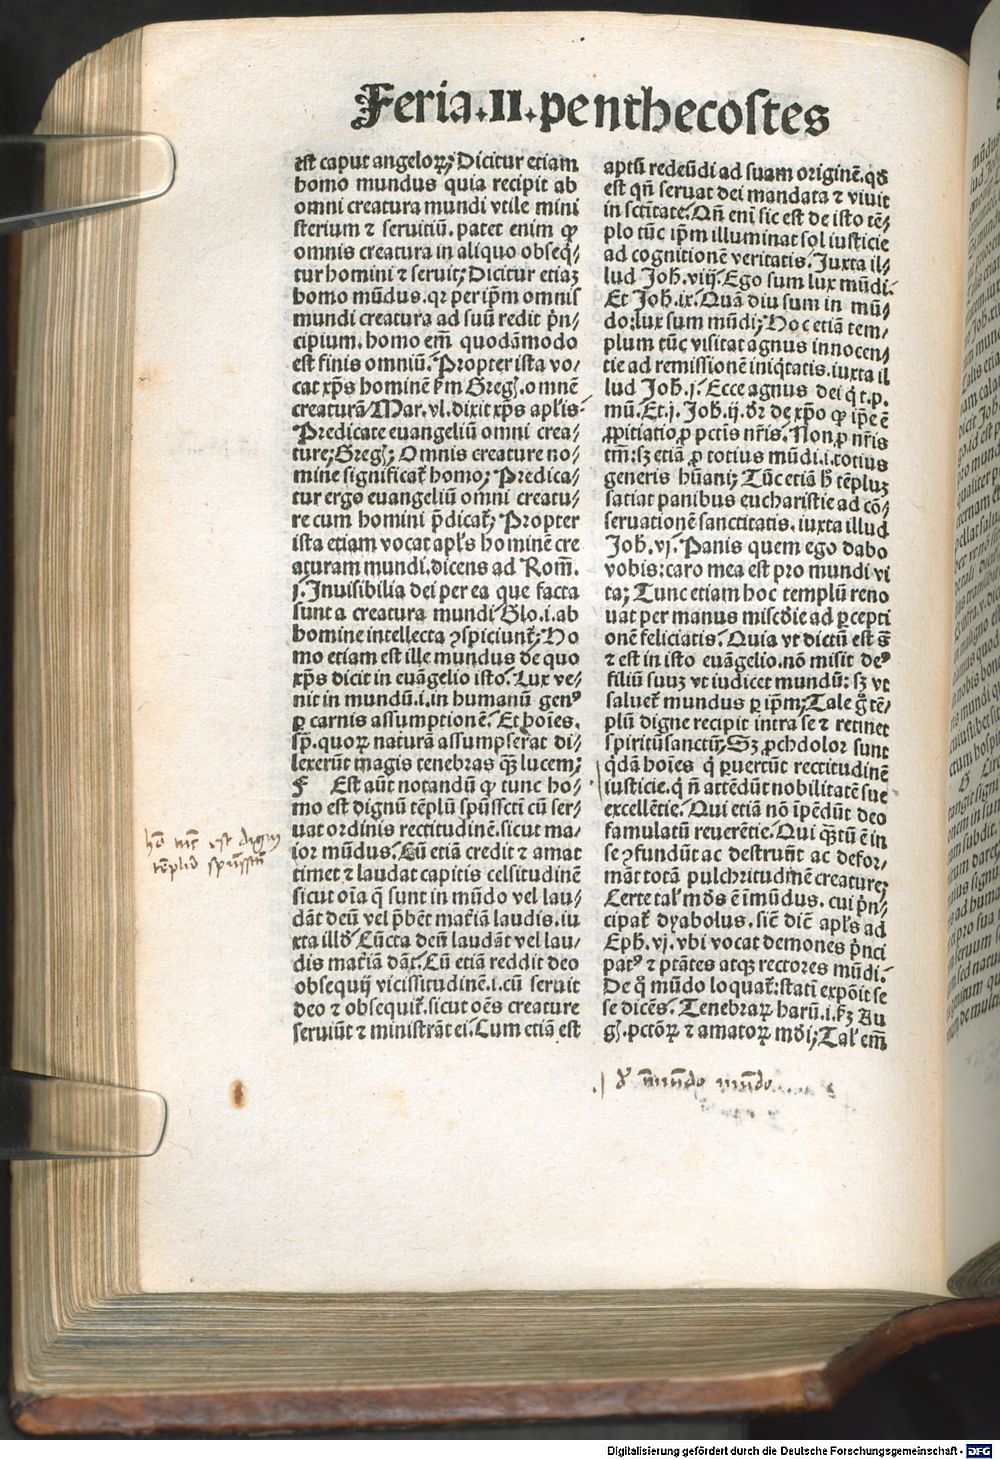 Feria.II.penthecostes
est caput angeloꝝ; Dicitur etiam
homo mundus quia recipit ab
omni creatura mundi vtile mini
sterium ⁊ seruitiū. patet enim ꝙ
omnis creatura in aliquo obseq̄⸗
tur homini ⁊ seruit; Dicitur etiaꝫ
homo mūdus. qꝛ per ip̄m omnis
mundi creatura ad suū redit p̄n⸗
cipium. homo em̄ quodāmodo
est finis omniū. Propter ista vo⸗
cat xp̄s hominē
creaturā Mar. vl. dixit xp̄s apl̓is
Predicate euangeliū omni crea⸗
ture; Greg̓; Omnis creature no⸗
mine significat̉ homo; Predica⸗
tur ergo euangeliū omni creatu⸗
re cum homini p̄dicat̉; Propter
ista etiam vocat apl̓s hominē cre
aturam mundi. dicens ad Rom̄.
j. Inuisibilia dei per ea que facta
sunt a creatura mundi Glo. i. ab
homine intellecta ꝯspiciunt̉; Ho
mo etiam est ille mundus de quo
xp̄s dicit in euāgelio isto. Lux ve⸗
nit in mundū. i. in humanū genꝰ
ꝑ carnis assumptionē. Et hoīes.
sp̄. quoꝝ naturā assumpserat di⸗
lexerūt magis tenebras qꝫ lucem;
F Est aūt notandū ꝙ tunc ho⸗
mo est dignū tēplū spūssctī cū ser⸗
uat ordinis rectitudinē. sicut ma⸗
ior mūdus. Cū etiā credit ⁊ amat
timet ⁊ laudat capitis celsitudinē
sicut oīa q̄ sunt in mūdo vel lau⸗
dāt deū vel p̄bēt mat̉iā laudis. iu
xta illd̓ Cūcta deū laudāt vel lau⸗
dis mat̉iā dāt. Cū etiā reddit deo
obsequij vicissitudinē. i. cū seruit
deo ⁊ obsequit̉. sicut oēs creature
seruiūt ⁊ ministrāt ei. Cum etiā est
aptū redeūdi ad suam originē. qd̓
est qn̄ seruat dei mandata ⁊ viuit
in sctītate. Qn̄ enī sic est de isto tē⸗
plo tūc ip̄m illuminat sol iusticie
ad cognitionē veritatis. Juxta il⸗
lud Joh̓. viij. Ego sum lux mūdi.
Et Joh̓. ix. Quādiu sum in mū⸗
do: lux sum mūdi; Hoc etiā tem⸗
plum tūc visitat agnus innocen⸗
tie ad remissionē iniq̄tatis. iuxta il
lud Joh̓. j. Ecce agnus dei q̇ t. p.
mū. Et. j. Joh̓. ij. dr̄ de xp̄o ꝙ ip̄e ē
ꝓpitiatio ꝓ pctīs nr̄is. Non ꝓ nr̄is
tm̄: sꝫ etiā ꝓ totius mūdi. i. totius
generis hūani; Tūc etiā h̓ tēpluꝫ
satiat panibus eucharistie ad cō⸗
seruationē sanctitatis. iuxta illud
Joh̓. vj. Panis quem ego dabo
vobis: caro mea est pro mundi vi
ta; Tunc etiam hoc templū reno
uat per manus miscd̓ie ad ꝑcepti
onē feliciatis. Quia vt dictū est
⁊ est in isto euāgelio. nō misit deꝰ
filiū suuꝫ vt iudicet mundū: sꝫ vt
saluet̉ mundus ꝑ ip̄m; Tale g̊ tē⸗
plū digne recipit intra se ⁊ retinet
spiritūsanctū; Sꝫ ꝓchdolor sunt
q̄dā hoīes q̇ ꝑuertūt rectitudinē
iusticie. q̇ n̄ attēdūt nobilitatē sue
excellētie. Qui etiā nō īpēdūt deo
famulatū reuerētie. Qui qꝫtū ē in
se ꝯfundūt ac destruūt ac defor⸗
māt totā pulchritudinē creature;
Certe tal̓ mds ē īmūdus. cui p̄n⸗
cipat̉ dyabolus. sic̄ dic̄ apl̓s ad
Eph̓. vj. vbi vocat demones p̄nci
patꝰ ⁊ ptātes atqꝫ rectores mūdi.
De q̊ mūdo loquat̉: statī expōit se
se dicēs. Tenebraꝝ harū. i. Au
g̓. pctōꝝ ⁊ amatoꝝ mdī; Tal̓ em̄
est
mundo mundo
Digitalisierung gefördert durch die Deutsche Forschungsgemeinschaft - DFG